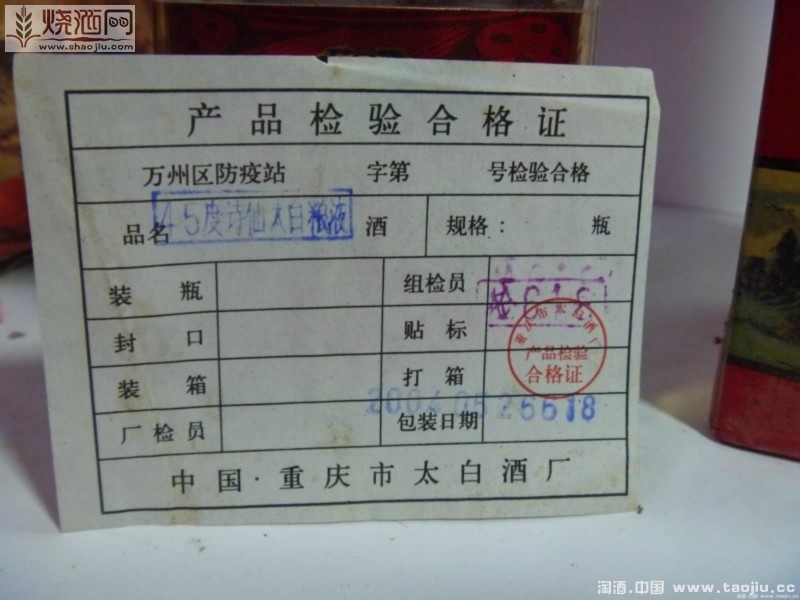 烧酒网
www.shaojiu.com
产品检验合格证
万州区防疫站 字第 号检验合格
品名 45度诗仙太白粮液 酒 规格: 瓶
装瓶 组检员
封口 贴标
重庆市太白酒厂
产品检验
合格证
装箱 打箱
厂检员 包装日期
中国·重庆市太白酒厂
淘酒.中国 www.taojiu.cc